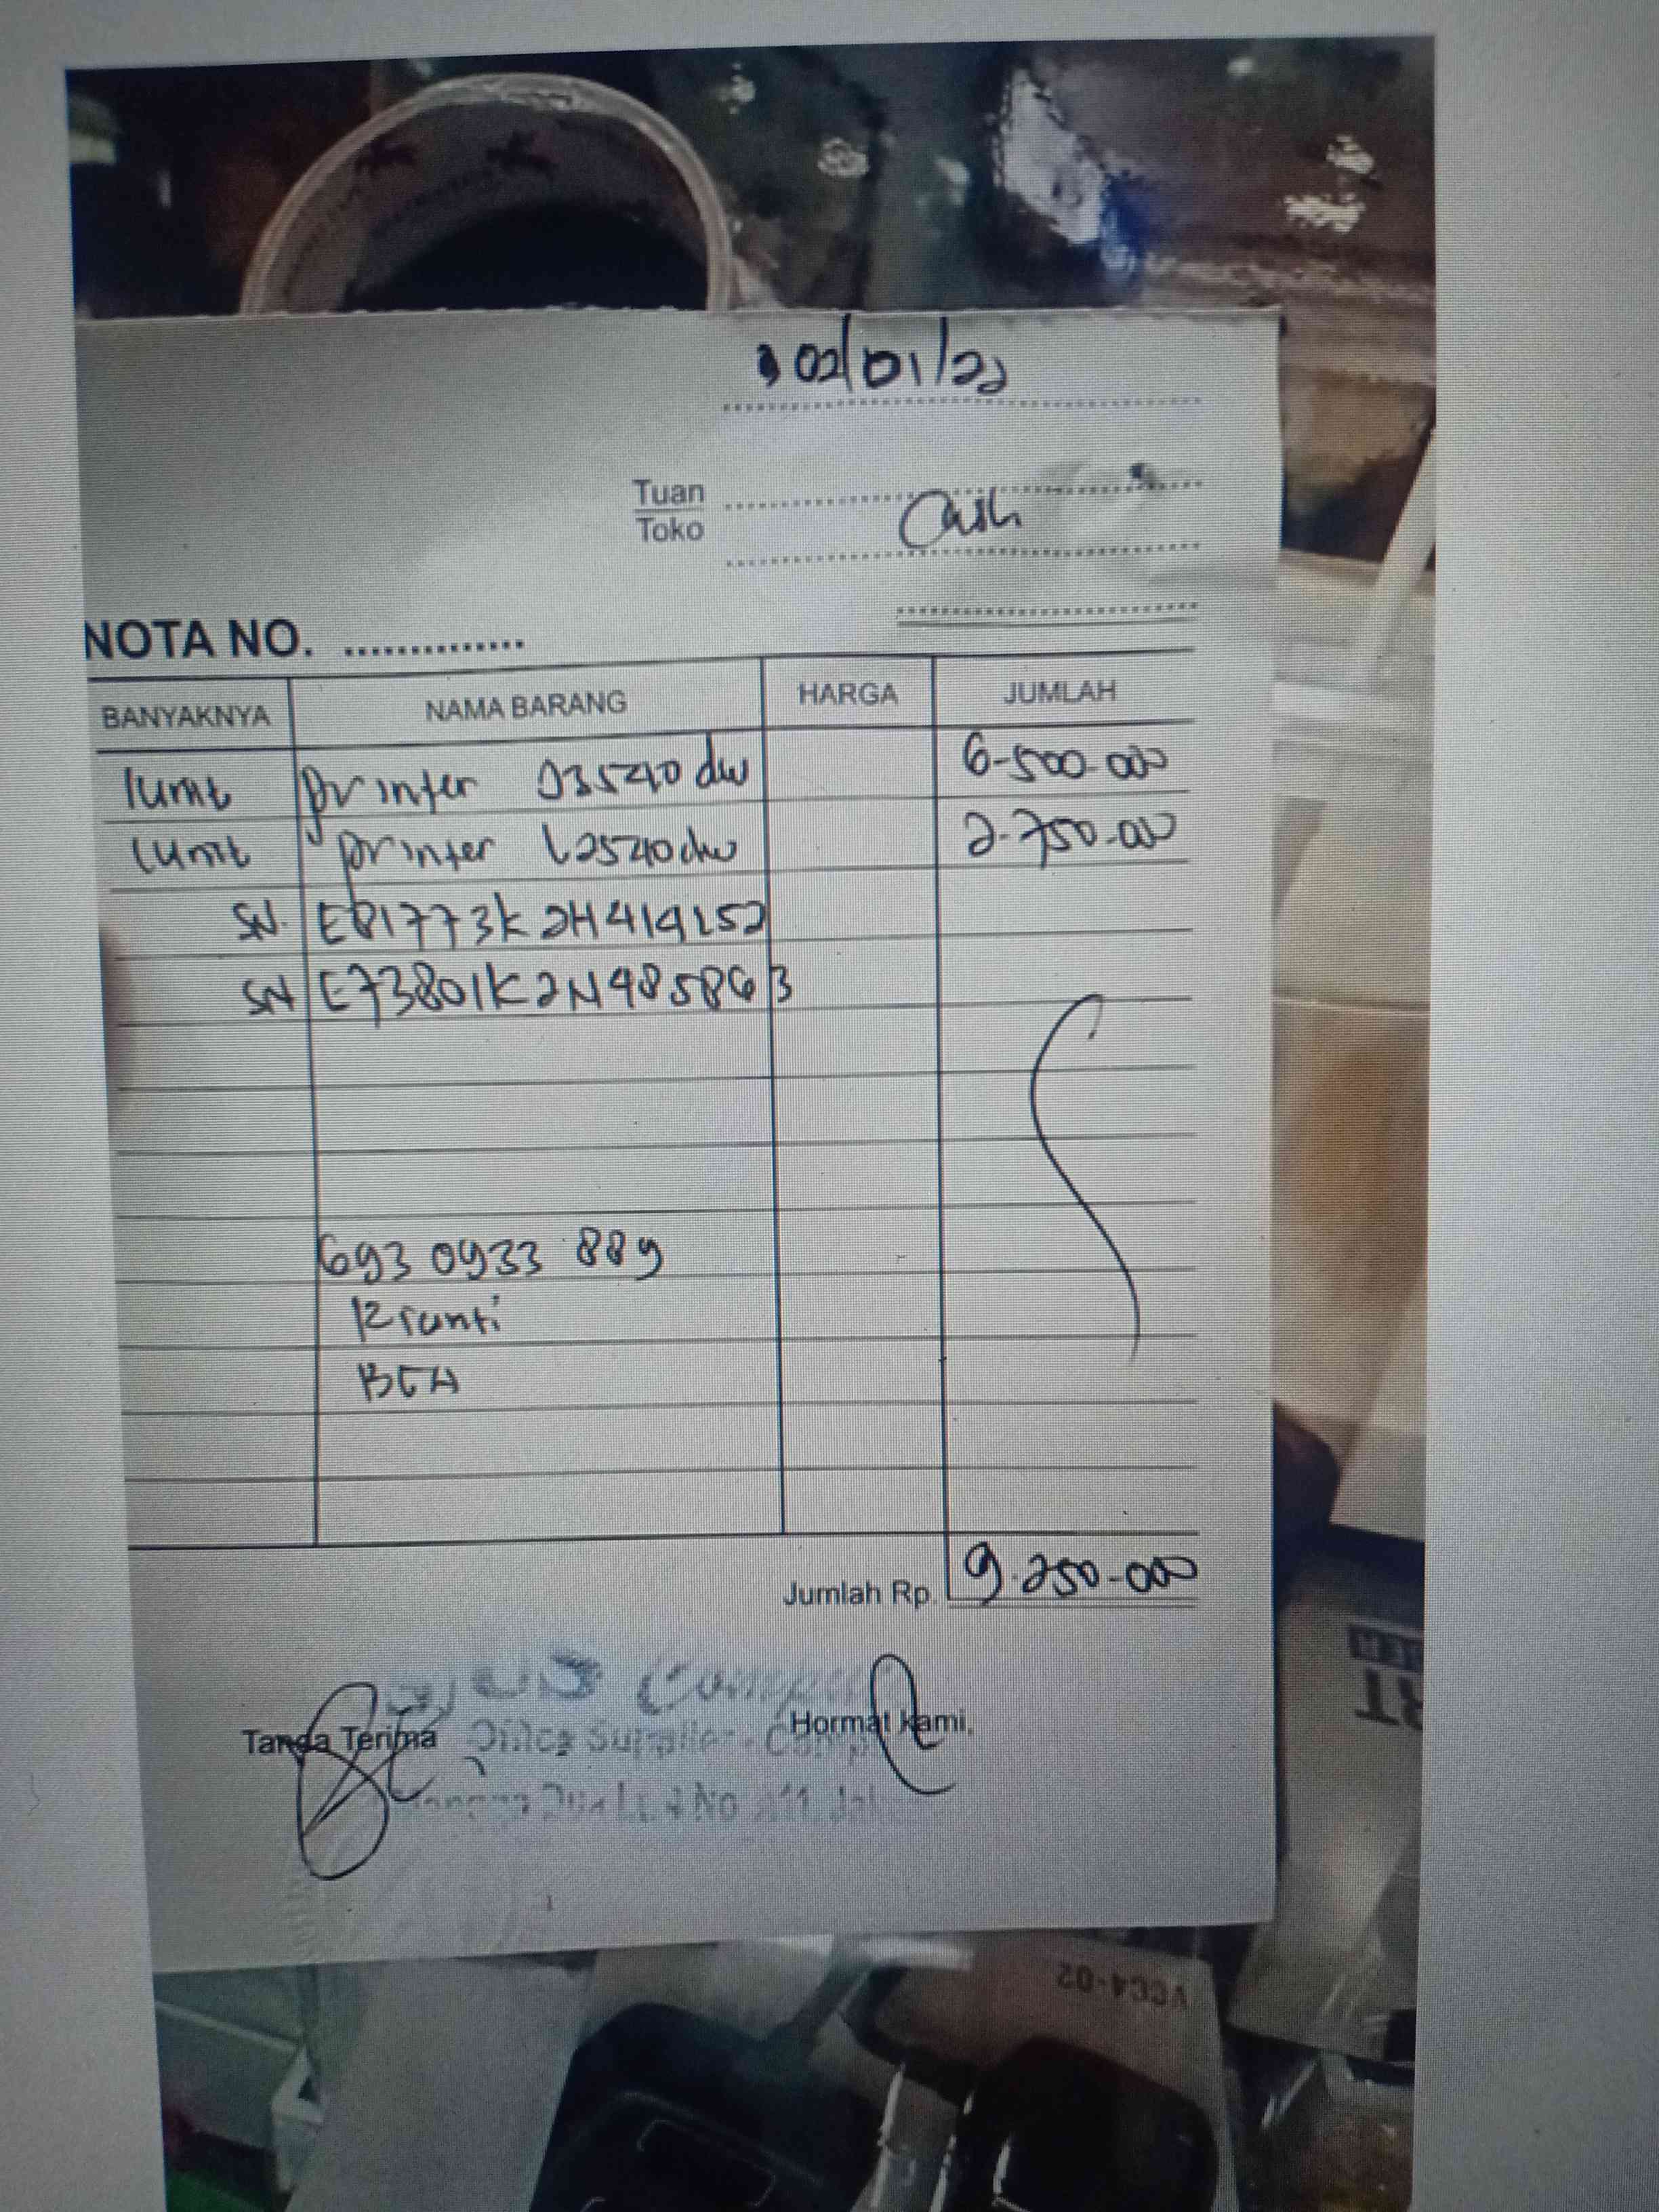 02/01/22
Tuan
Toko
Cash
NOTA NO. ..............
BANYAKNYA NAMA BARANG HARGA JUMLAH
1 unit printer J3540 dw 6-500-000
1 unit printer L2540dw 2-750-000
SN. E81773K2H419152
SN E73801K2N485863
693 0933 889
Kranti
BCA
Jumlah Rp. 9.250-000
Tanda Terima Hormat kami,
Office
No
VCC4-02